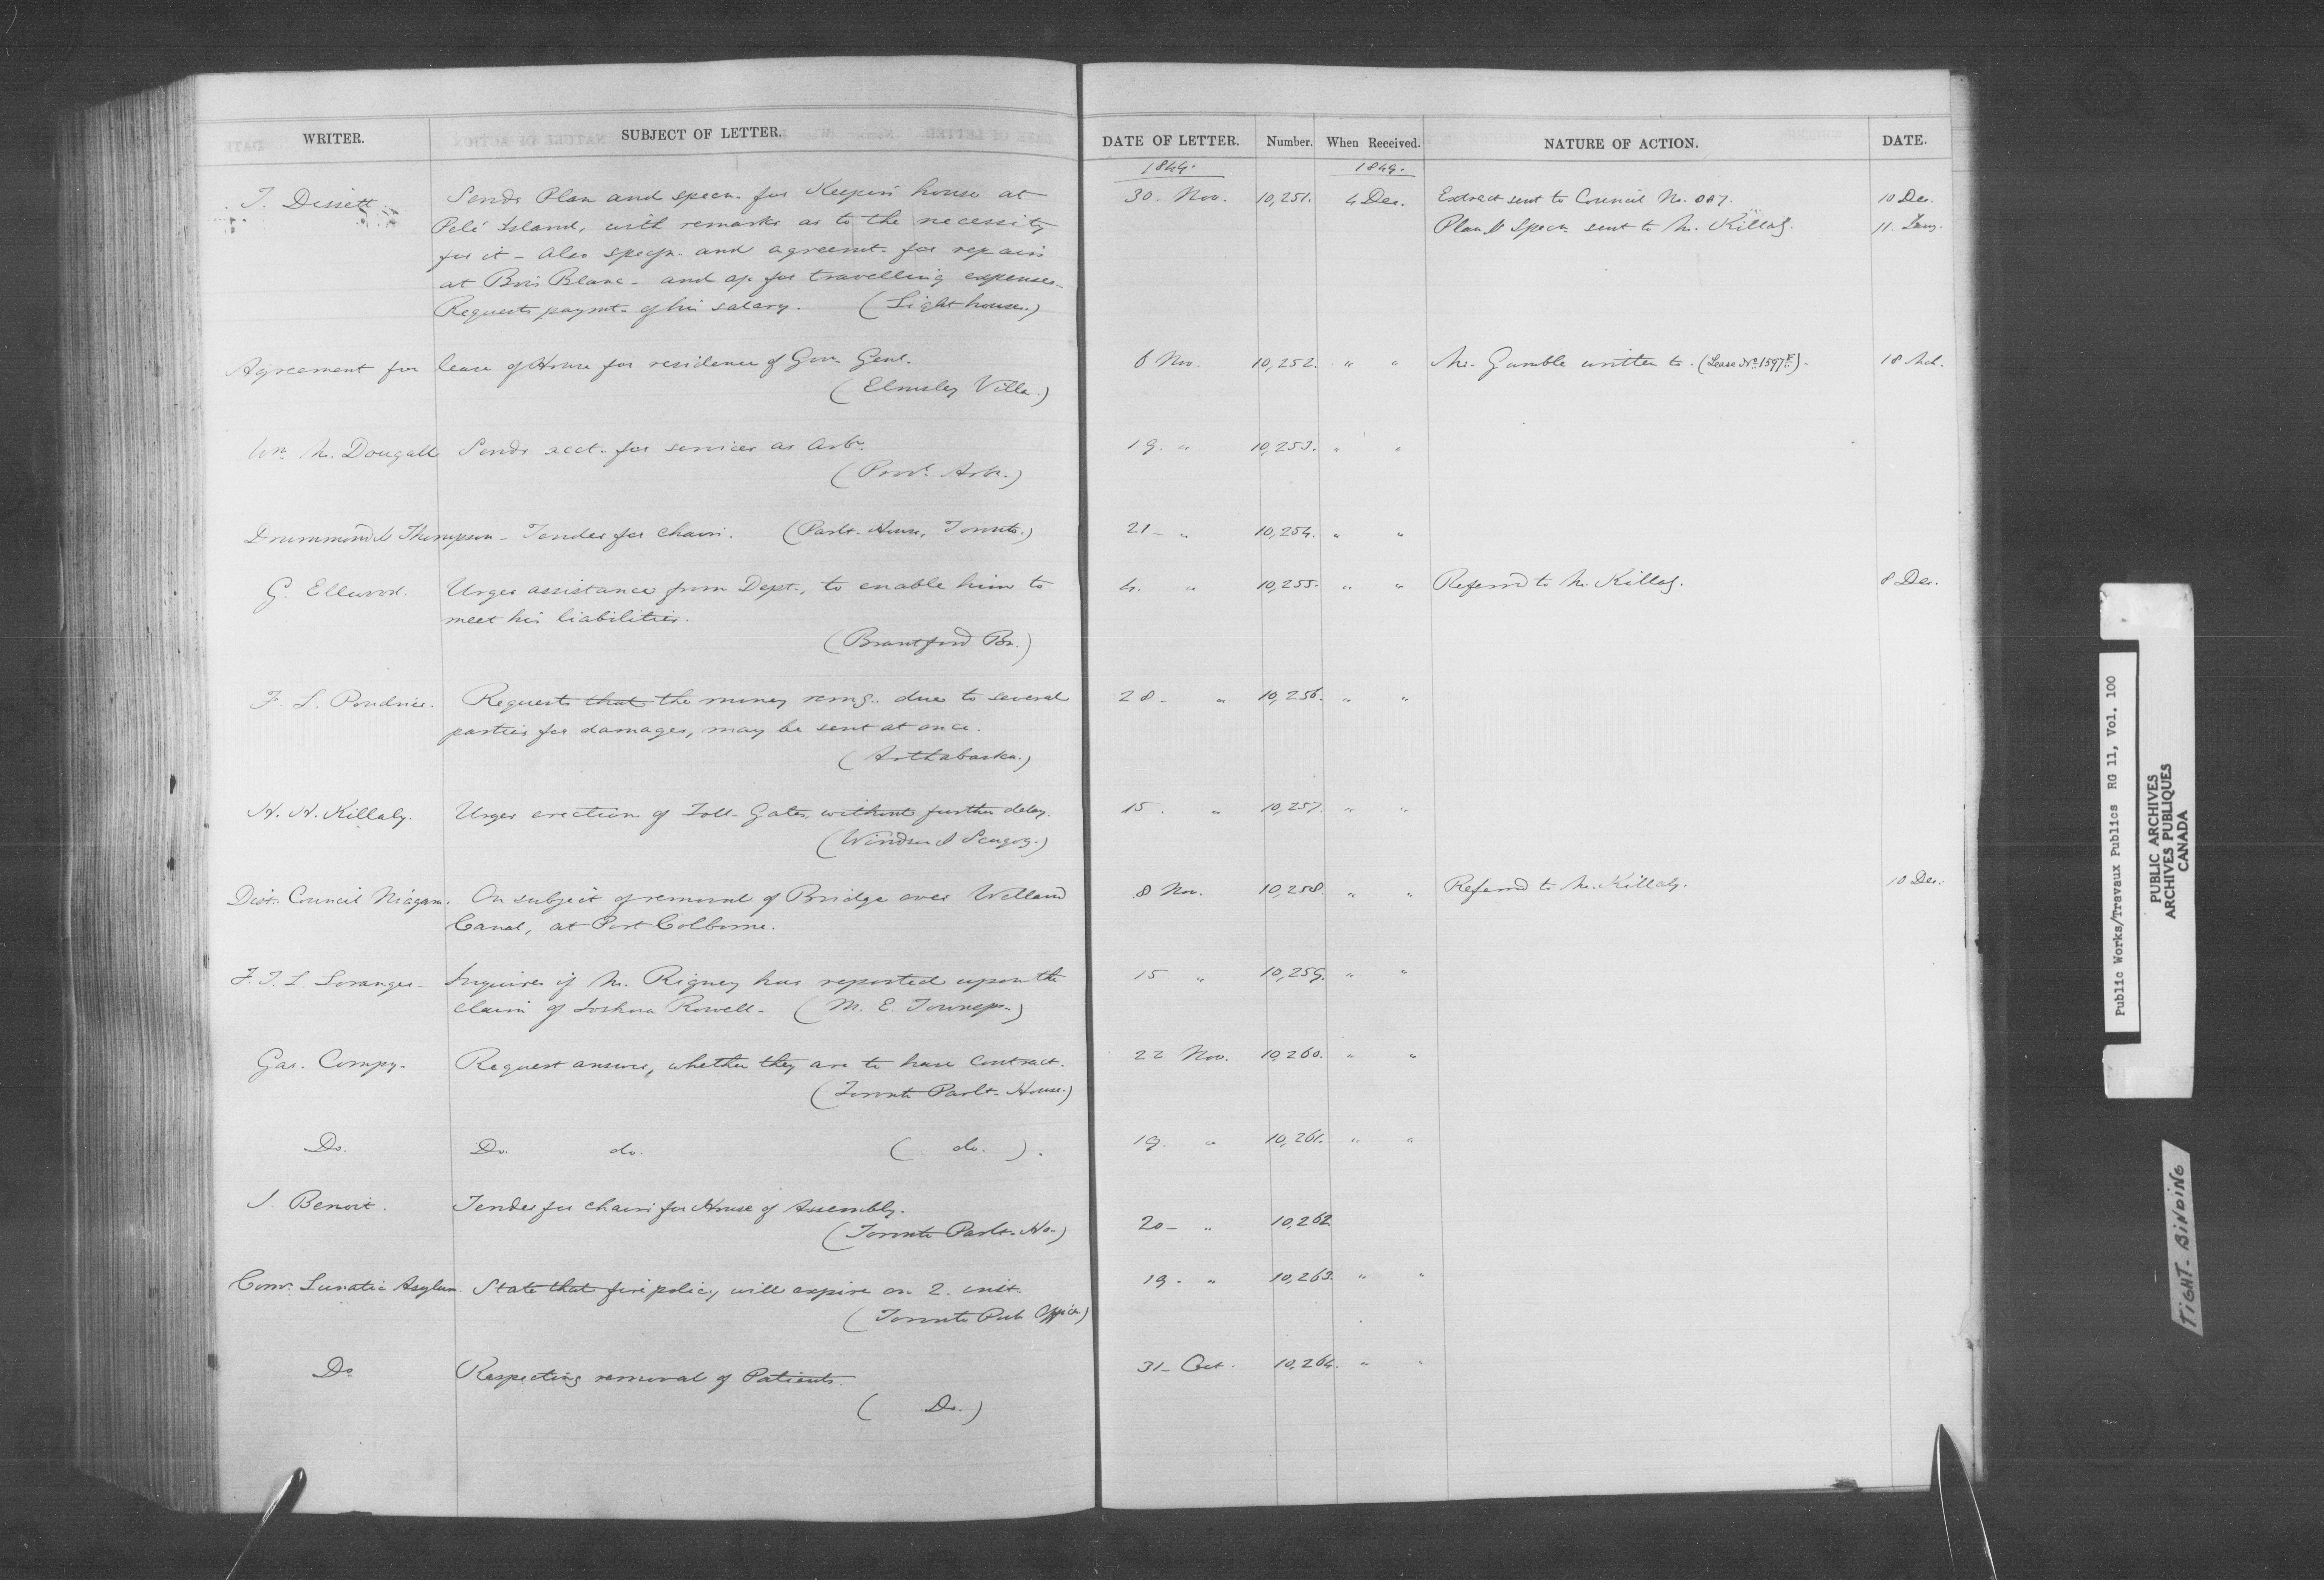 WRITER. SUBJECT OF LETTER. DATE OF LETTER. Number. When Received. NATURE OF ACTION. DATE.
1849. 1849.
Sends Plan and specn. for Keeper's house at 30 - Nov. 10,251. 4 Dec. Extract sent to Council No. 10 Dec.
Pelé Island, with remarks as to the necessity Plan & Specn. sent to Mr. Killaly. 11. Jany.
for it - also specn. and agreemt. for repairs
at Bois Blanc - and ap. for travelling expenses -
Requests paymt. of his salary. (Light houses.)
Agreement for lease of House for residence of Govr. Genl. 6 Nov. 10,252. " " Mr. Gamble written to. (Lease No. 1597) - 18
(Elmsley Villa.)
Wm. McDougall Sends acct. for services as Arbr. 19. " 10,253. " "
(Provl. Arbr.)
Drummond & Thompson - Tender for chairs. (Parlt. House, Toronto.) 21 - " 10,254. " "
G. Ellwood. Urges assistance from Dept., to enable him to 4. " 10,255. " " Referred to Mr. Killaly. 8 Dec.
meet his liabilities.
(Brantford Br.)
F. L. Poudrier. Requests that the money remg. due to several 28 - " 10,256. " "
parties for damages, may be sent at once.
(Arthabaska.)
H. H. Killaly. Urges erection of Toll-Gates, without further delay. 15. " 10,257. " "
(Windsor & Scugog.)
Dist. Council Niagara. On subject of removal of Bridge over Welland 8 Nov. 10,258. " " Referred to Mr. Killaly. 10 Dec.
Canal, at Port Colborne.
F. T. L. Loranger - Inquires if Mr. Rigney has reported upon the 15 " 10,259. " "
claim of Joshua Rowell - (M. E. Townsps.)
Gas. Compy. Request answer, whether they are to have contract. 22 Nov. 10,260. " "
(Toronto Parlt. House.)
Do. Do. do. ( do. ). 19. " 10,261. " "
J. Benoit. Tender for chairs for House of Assembly. 20 - " 10,262
(Toronto Parlt. Ho-)
Comr. Lunatic Asylum. State that fire policy will expire on 2. inst. 19 - " 10,263. " "
(Toronto Pub Offices)
Do Respecting removal of Patients. 31 - Oct. 10,264. " "
( Do. )
Public Works/Travaux Publics RG 11, Vol. 100
PUBLIC ARCHIVES
ARCHIVES PUBLIQUES
CANADA
TIGHT-BINDING